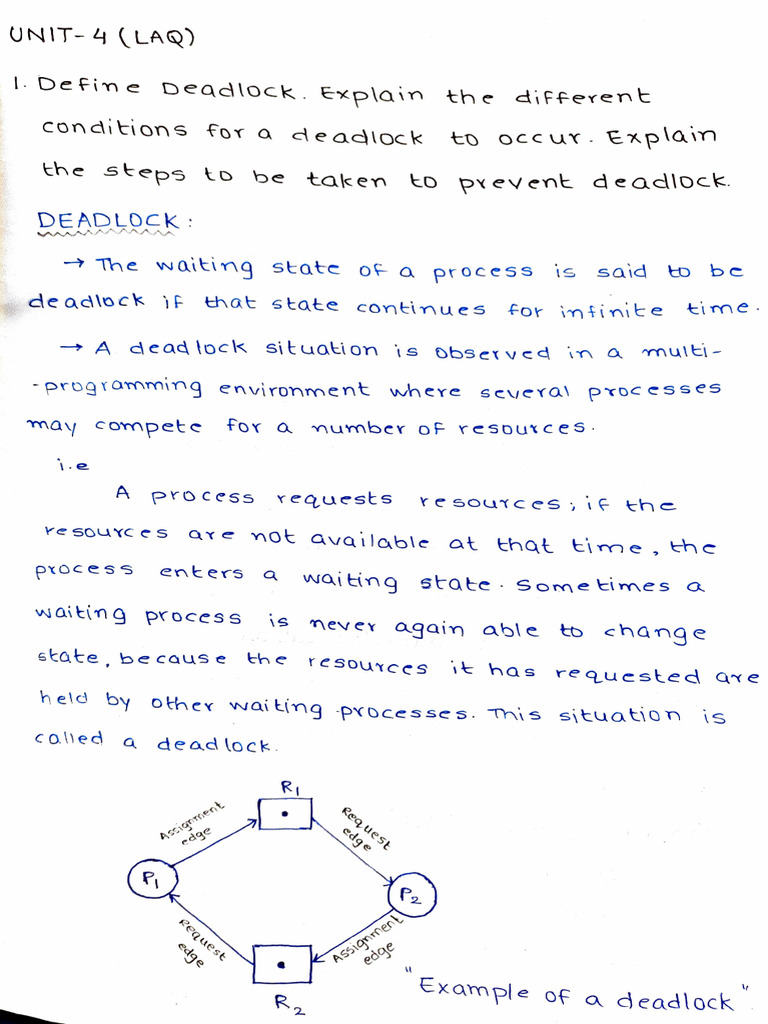 UNIT-4 (LAQ)
1. Define Deadlock. Explain the different
conditions for a deadlock to occur. Explain
the steps to be taken to prevent deadlock.
DEADLOCK:
→ The waiting state of a process is said to be
deadlock if that state continues for infinite time.
→ A deadlock situation is observed in a multi-
-programming environment where several processes
may compete for a number of resources.
i.e
A process requests resources; if the
resources are not available at that time, the
process enters a waiting state. Sometimes a
waiting process is never again able to change
state, because the resources it has requested are
held by other waiting processes. This situation is
called a deadlock.
R1
Assignment
edge
Request
edge
P1
P2
Request
edge
Assignment
edge
R2
"Example of a deadlock"